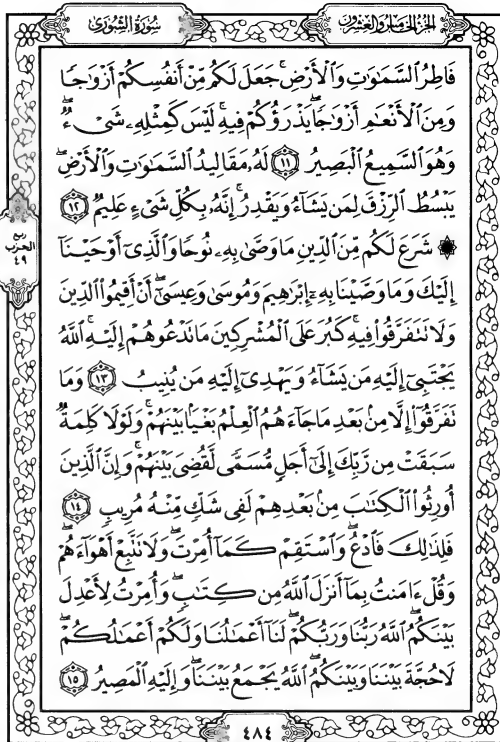 الجزء الخامس والعشرون
سُورَةُ الشُّورَىٰ
فَاطِرُ السَّمَٰوَٰتِ وَالْأَرْضِ ۚ جَعَلَ لَكُم مِّنْ أَنفُسِكُمْ أَزْوَٰجًا
وَمِنَ الْأَنْعَٰمِ أَزْوَٰجًا ۖ يَذْرَؤُكُمْ فِيهِ ۚ لَيْسَ كَمِثْلِهِۦ شَىْءٌ ۖ
وَهُوَ السَّمِيعُ الْبَصِيرُ ١١ لَهُۥ مَقَالِيدُ السَّمَٰوَٰتِ وَالْأَرْضِ ۖ
يَبْسُطُ الرِّزْقَ لِمَن يَشَآءُ وَيَقْدِرُ ۚ إِنَّهُۥ بِكُلِّ شَىْءٍ عَلِيمٌ ١٢
۞ شَرَعَ لَكُم مِّنَ الدِّينِ مَا وَصَّىٰ بِهِۦ نُوحًا وَالَّذِىٓ أَوْحَيْنَآ
إِلَيْكَ وَمَا وَصَّيْنَا بِهِۦٓ إِبْرَٰهِيمَ وَمُوسَىٰ وَعِيسَىٰٓ ۖ أَنْ أَقِيمُوا۟ الدِّينَ
وَلَا تَتَفَرَّقُوا۟ فِيهِ ۚ كَبُرَ عَلَى الْمُشْرِكِينَ مَا تَدْعُوهُمْ إِلَيْهِ ۚ اللَّهُ
يَجْتَبِىٓ إِلَيْهِ مَن يَشَآءُ وَيَهْدِىٓ إِلَيْهِ مَن يُنِيبُ ١٣ وَمَا
تَفَرَّقُوٓا۟ إِلَّا مِنۢ بَعْدِ مَا جَآءَهُمُ الْعِلْمُ بَغْيًۢا بَيْنَهُمْ ۚ وَلَوْلَا كَلِمَةٌ
سَبَقَتْ مِن رَّبِّكَ إِلَىٰٓ أَجَلٍ مُّسَمًّى لَّقُضِىَ بَيْنَهُمْ ۚ وَإِنَّ الَّذِينَ
أُورِثُوا۟ الْكِتَٰبَ مِنۢ بَعْدِهِمْ لَفِى شَكٍّ مِّنْهُ مُرِيبٍ ١٤
فَلِذَٰلِكَ فَادْعُ ۖ وَاسْتَقِمْ كَمَآ أُمِرْتَ ۖ وَلَا تَتَّبِعْ أَهْوَآءَهُمْ ۖ
وَقُلْ ءَامَنتُ بِمَآ أَنزَلَ اللَّهُ مِن كِتَٰبٍ ۖ وَأُمِرْتُ لِأَعْدِلَ
بَيْنَكُمُ ۖ اللَّهُ رَبُّنَا وَرَبُّكُمْ ۖ لَنَآ أَعْمَٰلُنَا وَلَكُمْ أَعْمَٰلُكُمْ ۖ
لَا حُجَّةَ بَيْنَنَا وَبَيْنَكُمُ ۖ اللَّهُ يَجْمَعُ بَيْنَنَا ۖ وَإِلَيْهِ الْمَصِيرُ ١٥
ربع
الحزب
٤٩
٤٨٤